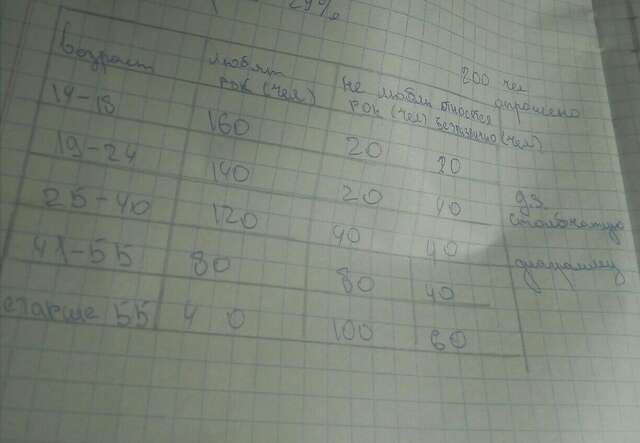 29%
200 чел
опрошено
возраст любят не любят относятся
рок (чел) рок (чел) безразлично (чел)
14-18 160 20 20
19-24 140 20 40
25-40 120 40 40
41-55 80 80 40
старше 55 40 100 60
дз
столбчатую
диаграмму